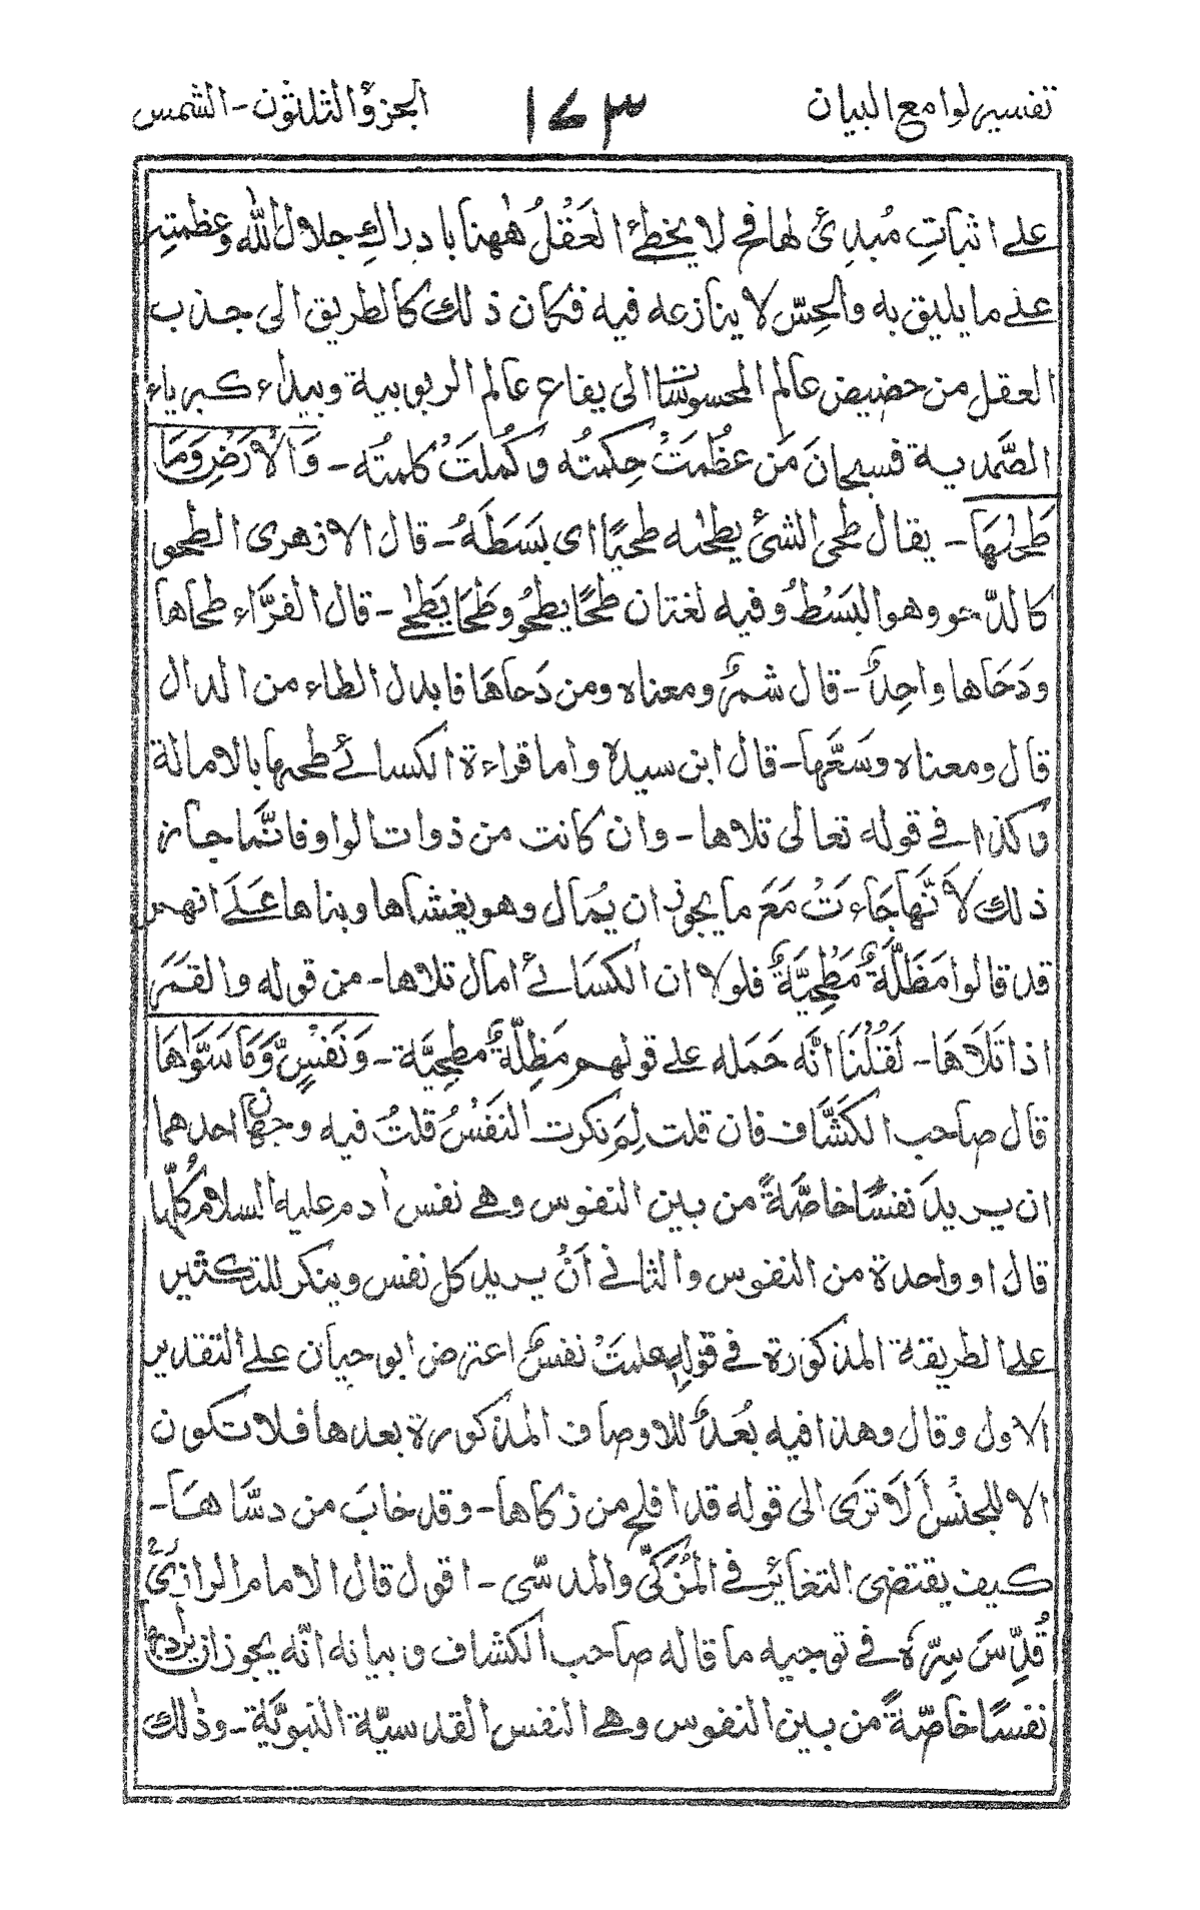 تفسير لوامع البيان ١٧٣ الجزؤ الثلثون - الشمس
على اثباتِ مُبدِئ لها فح لا يخطئ العَقْلُ هٰهنا بادراكِ جلال الله وعظمته
على ما يليق به والحِسّ لا ينازعه فيه فكان ذلك كالطريق الى جذب
العقل من حضيض عالم المحسوسات الى يفاع عالم الربوبية وبيداء كبرياء
الصَّمدية فسبحانَ مَن عظُمَتْ حِكمتُه وكُملَتْ كلمتُه - وَالْاَرْضِ وَمَا
طَحٰىهَا - يقال طحى الشئ يطحٰه طحيًا اى بَسَطَهُ - قال الازهرى الطحو
كالدّحو وهو البَسْطُ وفيه لغتان طحَا يطحُو وطَحَا يَطحٰى - قال الفرَّاء طحَاها
ودَحَاها واحِدٌ - قال شمرٌ ومعناه ومن دَحاهَا فابدل الطاء من الدال
قال ومعناه وسَعَّها - قال ابن سيده واما قراءة الكسائے طحىها بالامالة
وكذا فى قوله تعالى تلاها - وان كانت من ذوات الواو فانَّما جاز
ذلك لاَنَّها جَاءتْ مَعَ ما يجوز ان يُمال وهو يغشاها وبناها عَلَى انهم
قد قالوا مَظَلَّةٌ مَطْحِيَّةٌ فلولا ان الكسَائے امال تلاها - من قوله والقَمَرِ
اذا تَلَاهَا - لَقُلْنَا انَّه حَمَله على قولهم مظِلّةٌ مطحِيَّة - وَنَفْسٍ وَّمَا سَوَّاهَا
قال صاحب الكشَّاف فان قلت لِمَ نكرت النَفْسُ قلتُ فيه وجهان احدهما
ان يريدَ نفسًا خاصَّةً من بين النفوس وهے نفس اٰدم عليه السلام كُلِّها
قال او واحدة من النفوس والثانے اَنْ يريد كل نفس وينكر للتكثير
على الطريقة المذكورة فے قوله علمتْ نفسٌ اعترض ابو حيان على التقدير
الاول وقال وهذا فيه بُعدٌ للاوصاف المذكورة بعدها فلا تكون
الا للجنْسِ اَلَا تَرَى الى قوله قد افلح من زكاها - وقد خابَ من دسَّاهَا -
كيف يقتضى التغائر فے المُزَكّى والمدسّى - اقول قال الامام الرازىُّ
قُدِّسَ سِرّهٗ فے توجيه ما قاله صاحب الكشاف وبيانه انّه يجوز ان يراد بها
نفسًا خاصّةً من بين النفوس وهے النفس القدسيّة النبويَّة - وذلك